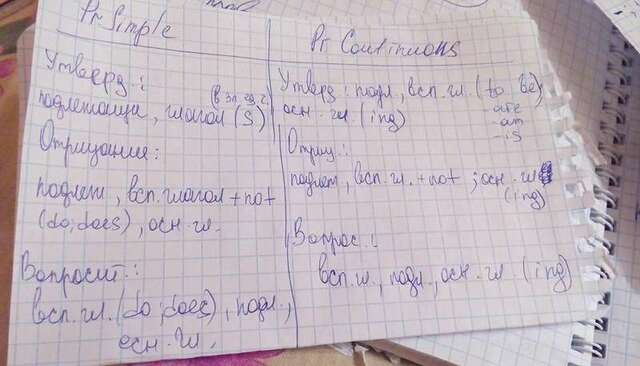 Pr Simple
Утверд.:
подлежаще, глагол (s)
(в 3 л. ед. ч.
Отрицание:
подлеж, всп. глагол + not
(do; does), осн. гл.
Вопросит.:
всп. гл. (do; does), подл.,
осн. гл.
Pr Continuous
Утверд: подл, всп. гл. (to be)
осн. гл. (ing)
- are
- am
- is
Отриц.:
подлеж, всп. гл. + not ; осн. гл
(ing)
Вопрос.:
всп. гл., подл., осн. гл (ing)